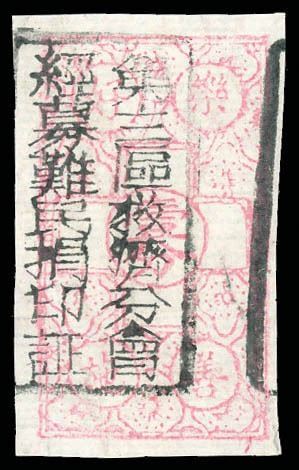 第三區救濟分會
經募難民捐印証
樂
善